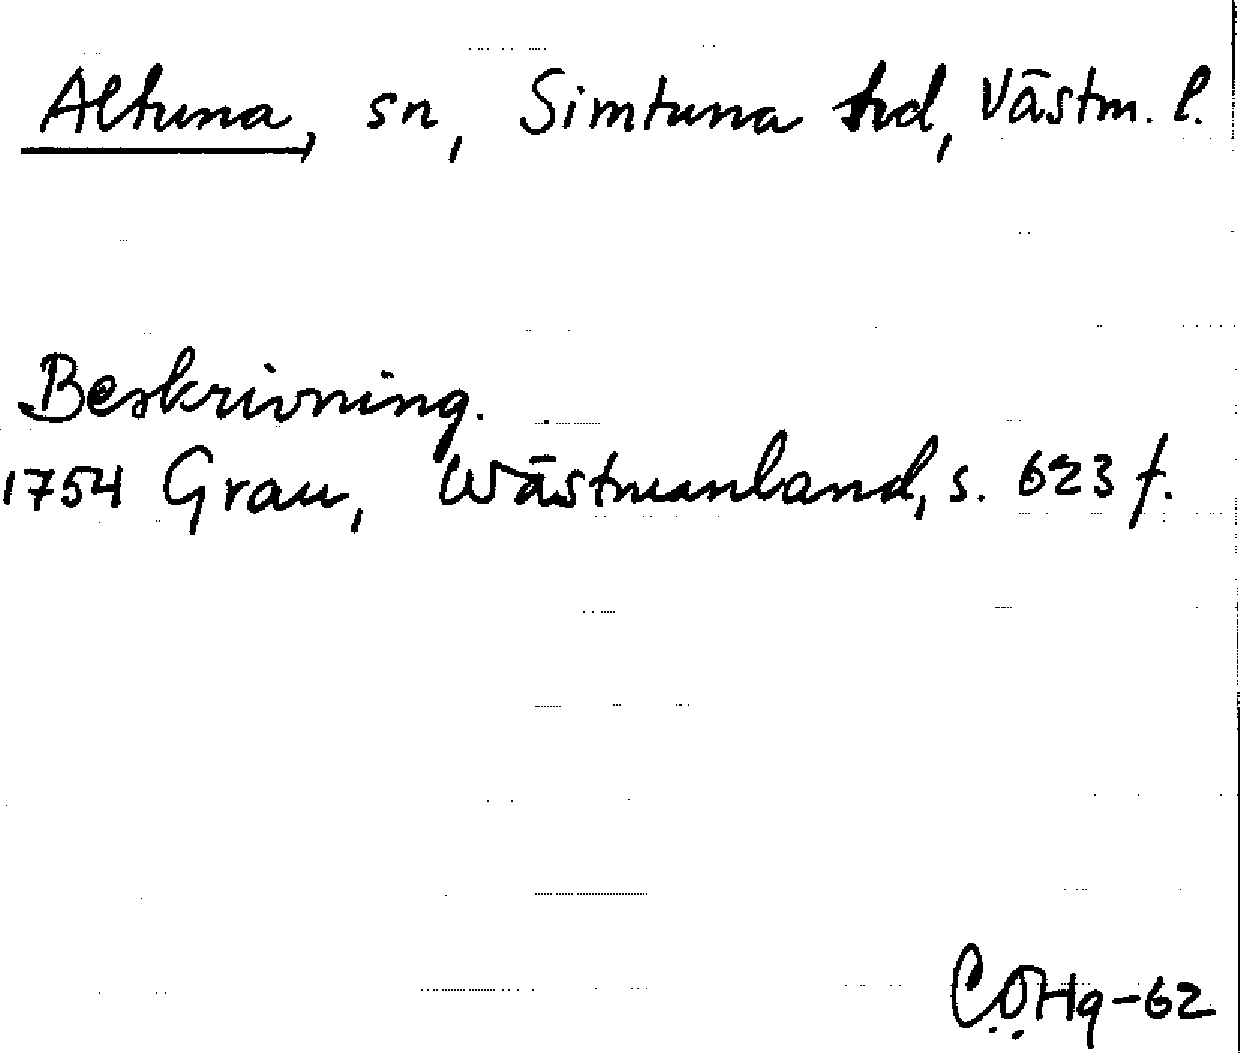 Altuna, sn, Simtuna hd, Västm. l.
Beskrivning.
1754 Grau, Wästmanland, s. 623 f.